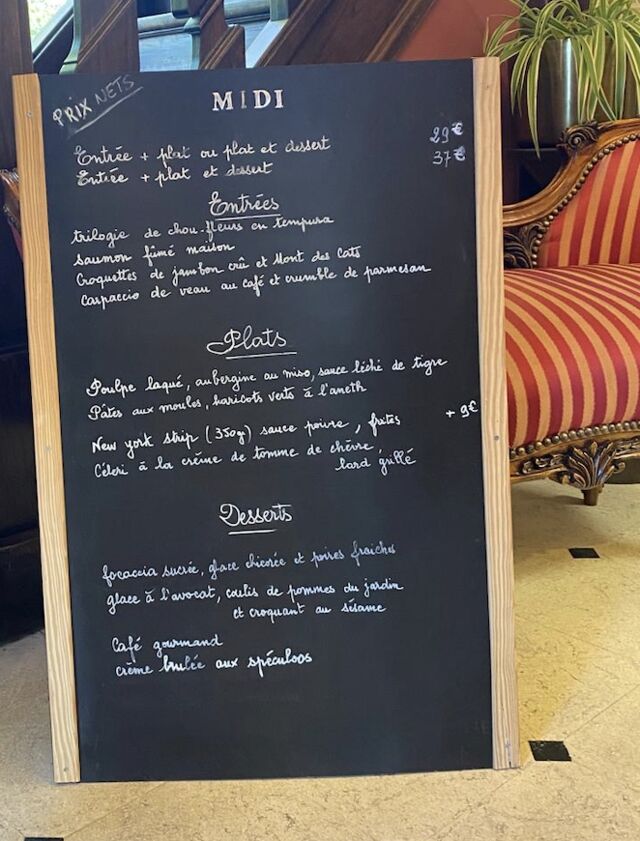 PRIX NETS
MIDI
Entrée + plat ou plat et dessert 29€
Entrée + plat et dessert 37€
Entrées
trilogie de chou-fleurs en tempura
saumon fûmé maison
Croquettes de jambon crû et Mont des Cats
Carpaccio de veau au café et crumble de parmesan
Plats
Poulpe laqué, aubergine au miso, sauce léché de tigre
Pâtes aux moules, haricots verts à l'aneth
New york strip (350g) sauce poivre, frites + 9€
Céleri à la crème de tomme de chèvre,
lard grillé
Desserts
focaccia sucrée, glace chicorée et poires fraiches
glace à l'avocat, coulis de pommes du jardin
et croquant au sésame
Café gourmand
crème brulée aux spéculoos